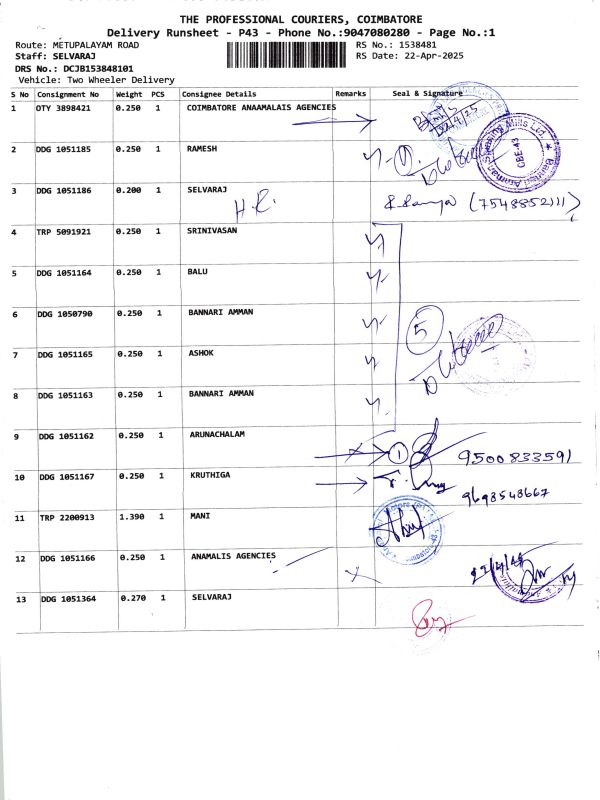 THE PROFESSIONAL COURIERS, COIMBATORE
Delivery Runsheet - P43 - Phone No.:9047080280 - Page No.:1
Route: METUPALAYAM ROAD
RS No.: 1538481
Staff: SELVARAJ
RS Date: 22-Apr-2025
DRS No.: DCJB153848101
Vehicle: Two Wheeler Delivery
S No Consignment No Weight PCS Consignee Details Remarks Seal & Signature
1 OTY 3898421 0.250 1 COIMBATORE ANAAMALAIS AGENCIES
2 DDG 1051185 0.250 1 RAMESH
3 DDG 1051186 0.200 1 SELVARAJ
H.R.
4 TRP 5091921 0.250 1 SRINIVASAN
5 DDG 1051164 0.250 1 BALU
6 DDG 1050790 0.250 1 BANNARI AMMAN
5
7 DDG 1051165 0.250 1 ASHOK
8 DDG 1051163 0.250 1 BANNARI AMMAN
9 DDG 1051162 0.250 1 ARUNACHALAM
1 9500833591
10 DDG 1051167 0.250 1 KRUTHIGA
9693543667
11 TRP 2200913 1.390 1 MANI
12 DDG 1051166 0.250 1 ANAMALIS AGENCIES
13 DDG 1051364 0.270 1 SELVARAJ